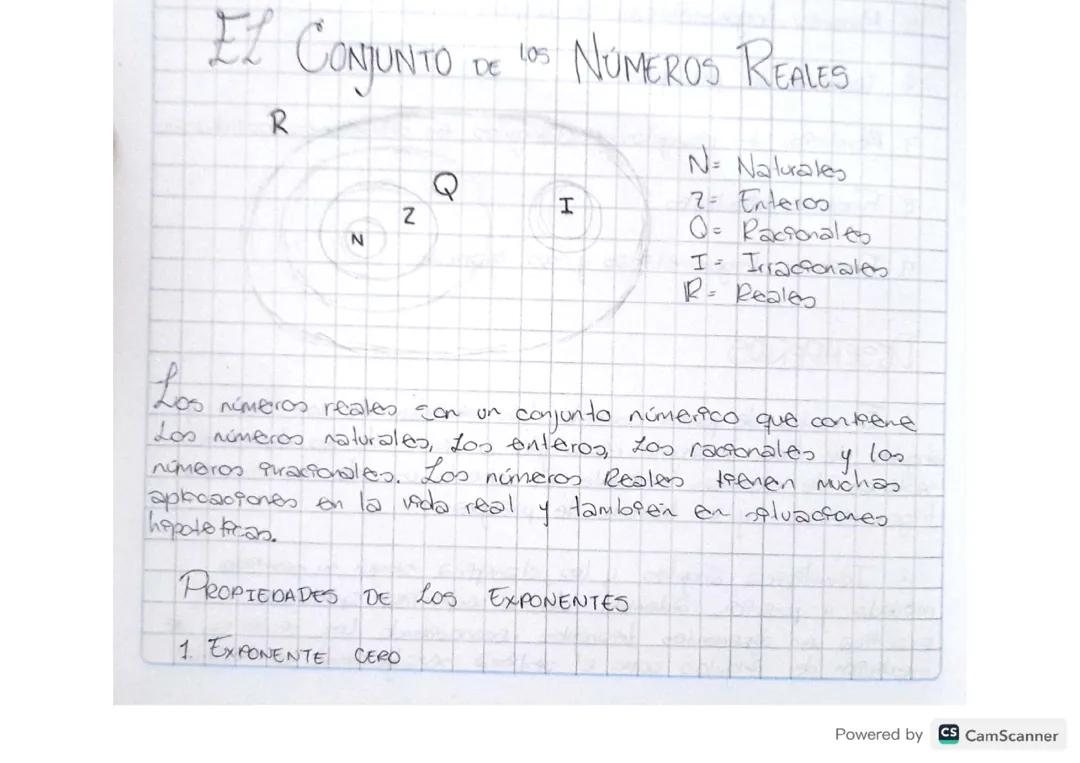 EL CONJUNTO DE LOS NÚMEROS REALES
R
Q
I
Z
N
N= Naturales
Z= Enteros
Q= Racionales
I= Irracionales
R= Reales
Los números reales son un conjunto númerico que contiene
Los números naturales, Los enteros, Los racionales y los
números irracionales. Los números Reales tienen muchas
aplicaciones en la vida real y también en situaciones
hipoteticas.
PROPIEDADES DE LOS EXPONENTES
1. EXPONENTE CERO
Powered by CS CamScanner